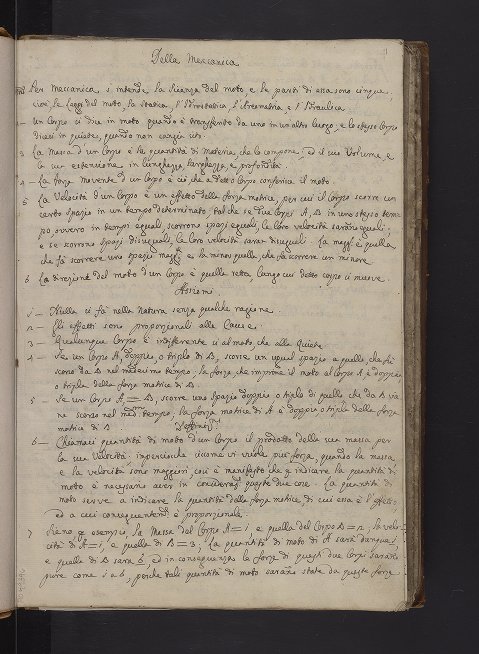 Della Meccanica
Per Meccanica s'intende la scienza del moto, e le parti di essa sono cinque,
cioè, le Leggi del moto, la Statica, l'Idrostatica, l'Areometria, e l'Idraulica.
Un Corpo si dice in moto quando è transferito da uno in un altro luogo, e lo stesso Corpo
dicesi in quiete, quando non cangia sito.
3 La Massa d'un Corpo è la quantità di materia, che lo compone, ed il suo Volume, e
la sua estensione in lunghezza, larghezza, e profondità.
4 – La forza movente d'un Corpo è ciò che a detto Corpo conferisce il moto.
5 La Velocità d'un Corpo è un effetto della forza motrice, per cui il Corpo scorre un
certo spazio in un tempo determinato; tal che se due Corpi A, B in uno stesso tem-
po, ovvero in tempi eguali, scorrono spazi eguali, le loro velocità saranno eguali;
e se scorrono spazi disuguali, le loro velocità saran disuguali. La magg.e è quella
che fa scorrere uno spazio magg.e e la minore quella che fa scorrere un minore.
6 La direzione del moto d'un Corpo è quella retta, lungo cui detto corpo si muove.
Assiomi
1 – Nulla si fà nella natura senza qualche ragione.
2 – Gli effetti sono proporzionali alle Cause.
3 – Qualunque Corpo è indifferente sì al moto, che alla Quiete.
4 – Se un Corpo A, doppio, o triplo di B, scorre un ugual spazio a quello, che fà
scorso da B nel medesimo tempo, la forza, che imprime il moto al Corpo A è doppia,
o tripla della forza motrice di B.
5 – Se un Corpo A = B, scorre uno spazio doppio o triplo di quello che da B vie
ne scorso nel med.mo tempo, la forza motrice di A è doppia o tripla della forza
motrice di B.
6 – Chiamasi quantità di moto d'un Corpo il prodotto della sua massa per
la sua Velocità, imperciocchè siccome vi vuole più forza, quando la massa,
e la velocità sono maggiori, così è manifesto che p indicare la quantità di
moto è necessario aver in consideraz.e queste due cose. La quantità di
moto serve a indicare la quantità della forza motrice, di cui essa è l'effetto,
ed a cui conseguentem.te è proporzionale.
7 Sieno p esempio, la Massa del Corpo A = 1 e quella del Corpo B = 2, la velo-
cità di A = 1, e quella di B = 3, La quantità di moto di A sarà dunque 1
e quella di B sarà 6, ed in conseguenza le forze di questi due Corpi saranno
pure come 1 a 6, perchè tali quantità di moto saranno state da queste forze